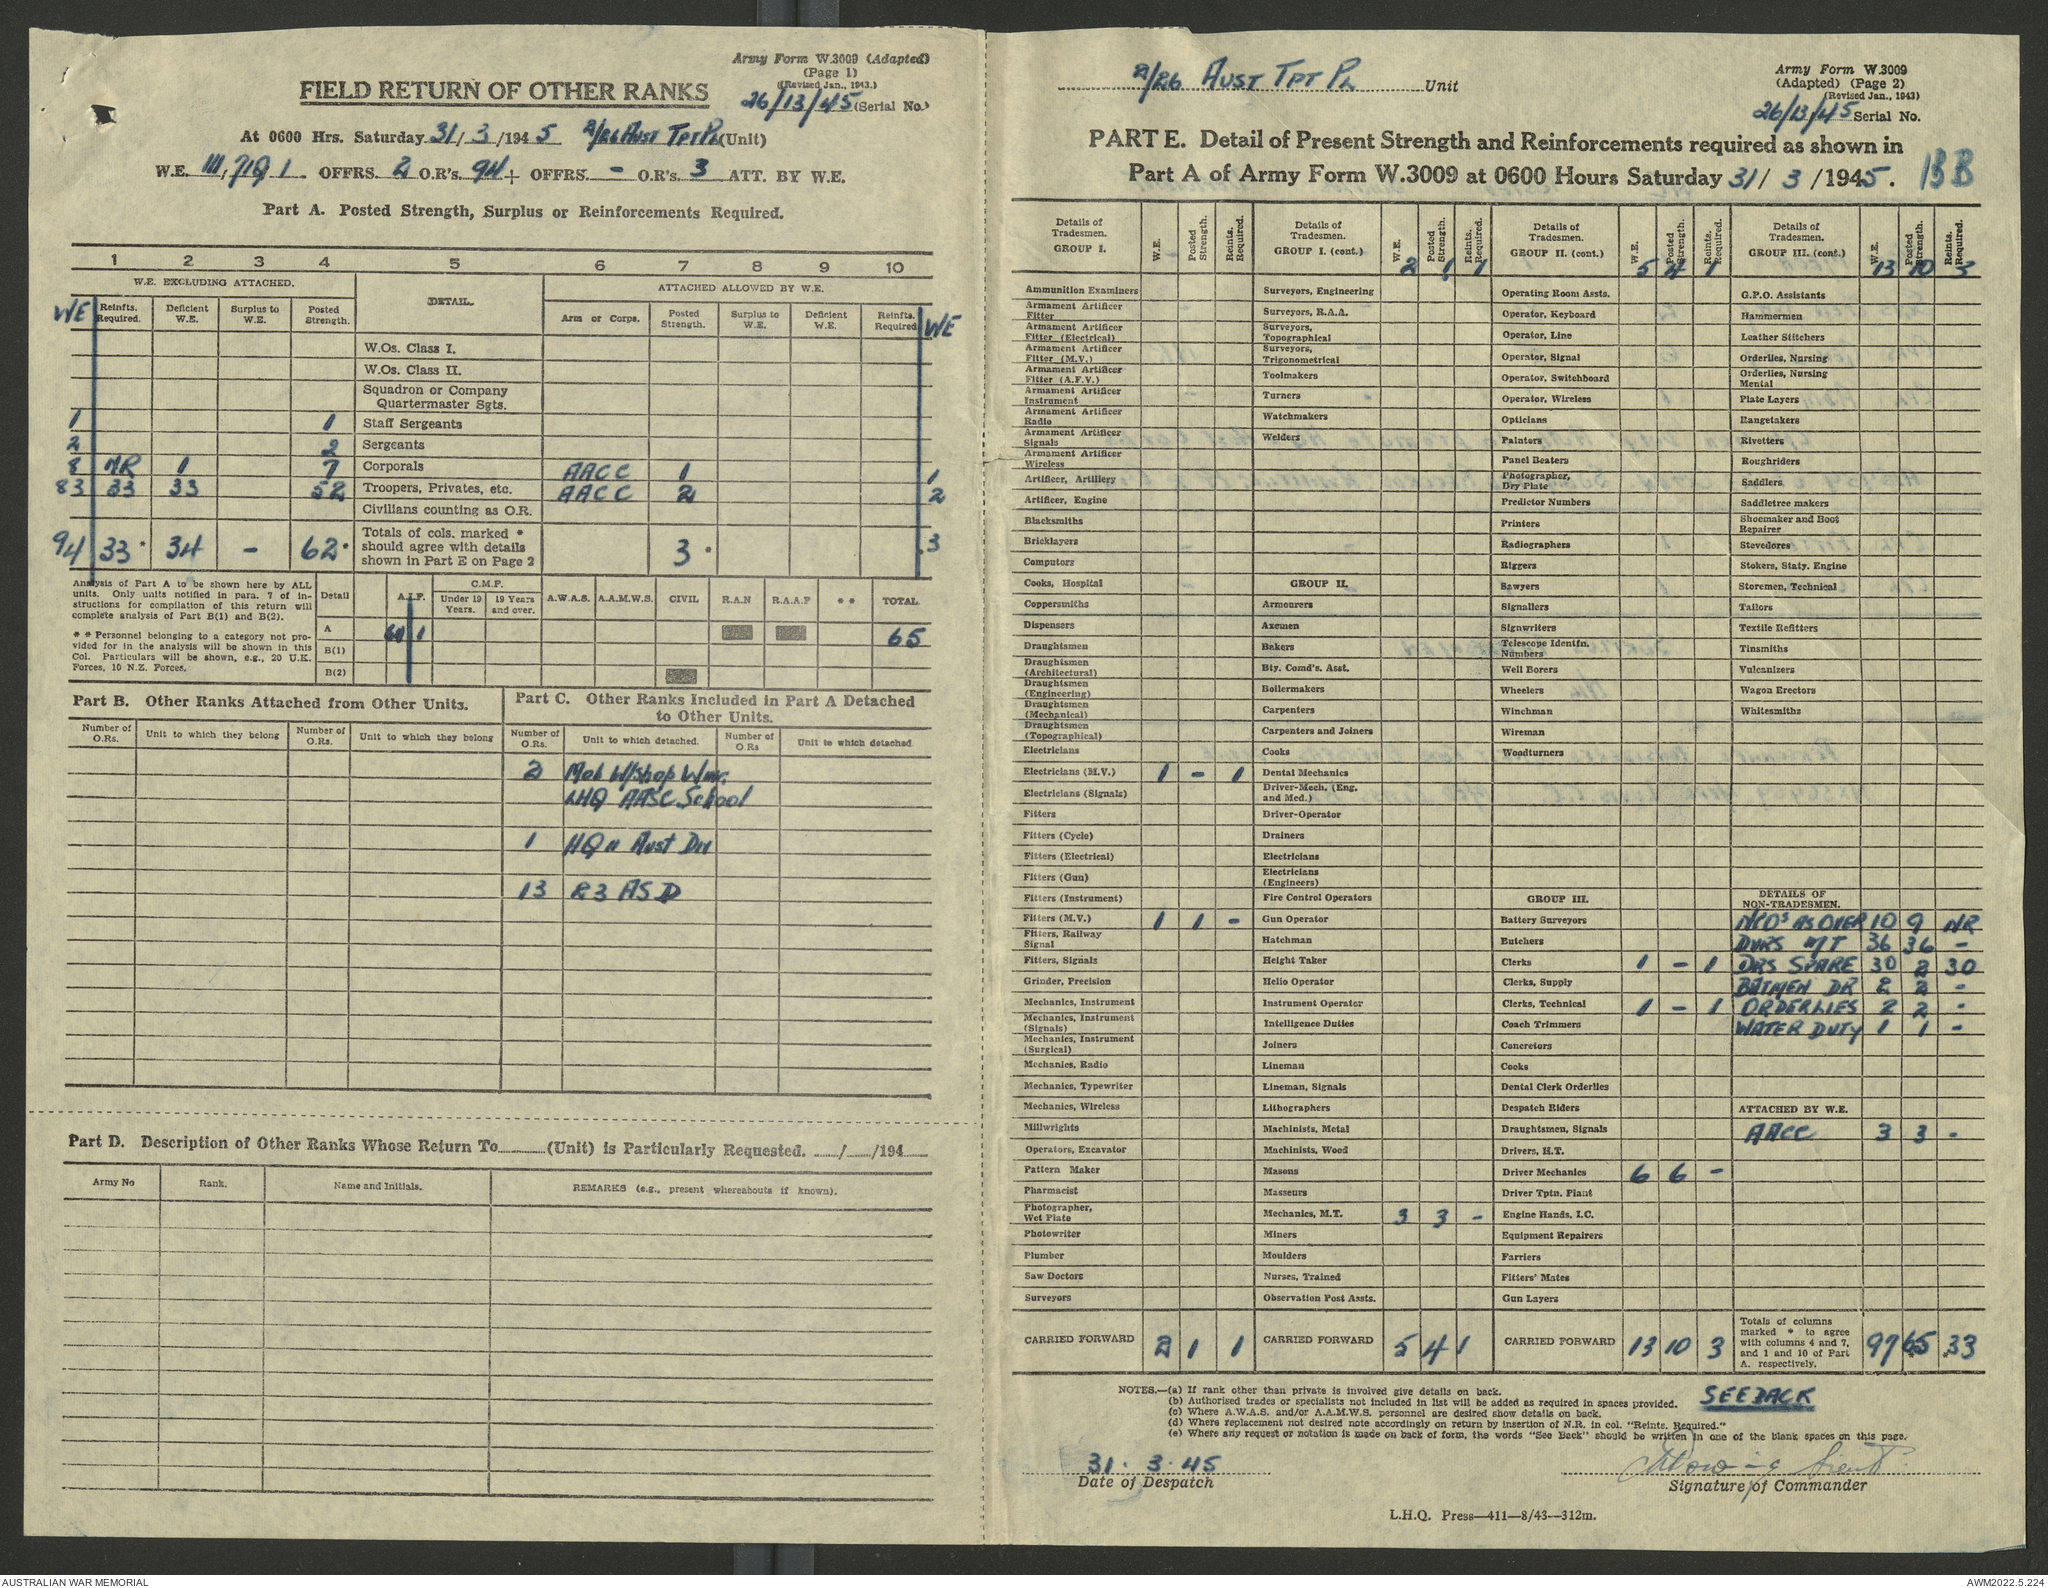 Army Form W.3009 (Adapted)
(Page 1)
(Revised Jan., 1943.)
FIELD RETURN OF OTHER RANKS
26/13/45 (Serial No.)
At 0600 Hrs. Saturday 31/3/1945 2/26 Aust Tpt Pl (Unit)
W.E. III, 71Q 1 OFFRS. 2 O.R's. 94 + OFFRS. - O.R's. 3 ATT. BY W.E.
Part A. Posted Strength, Surplus or Reinforcements Required.
1 2 3 4 5 6 7 8 9 10
W.E. EXCLUDING ATTACHED. DETAIL. ATTACHED ALLOWED BY W.E.
WE Reinfts. Required. Deficient W.E. Surplus to W.E. Posted Strength. Arm or Corps. Posted Strength. Surplus to W.E. Deficient W.E. Reinfts. Required WE
W.Os. Class I.
W.Os. Class II.
Squadron or Company
Quartermaster Sgts.
1 1 Staff Sergeants
2 2 Sergeants
8 NR 1 7 Corporals AACC 1 1
83 33 33 52 Troopers, Privates, etc. AACC 2 2
Civilians counting as O.R.
94 33 * 34 - 62 * Totals of cols. marked * should agree with details shown in Part E on Page 2 3 * 3
Analysis of Part A to be shown here by ALL
units. Only units notified in para. 7 of in-
structions for compilation of this return will
complete analysis of Part B(1) and B(2).
* * Personnel belonging to a category not pro-
vided for in the analysis will be shown in this
Col. Particulars will be shown, e.g., 20 U.K.
Forces, 10 N.Z. Forces.
Detail A.I.F. C.M.F. Under 19 Years. 19 Years and over. A.W.A.S. A.A.M.W.S. CIVIL R.A.N R.A.A.F * * TOTAL
A 64 1 65
B(1)
B(2)
Part B. Other Ranks Attached from Other Units.
Number of O.Rs. Unit to which they belong Number of O.Rs. Unit to which they belong
Part C. Other Ranks Included in Part A Detached
to Other Units.
Number of O.Rs. Unit to which detached. Number of O.Rs Unit to which detached
2 Mob W/Shop Wing
LHQ AASC School
1 HQ 11 Aust Div
13 R3 ASD
Part D. Description of Other Ranks Whose Return To (Unit) is Particularly Requested. / /194
Army No Rank. Name and Initials. REMARKS (e.g., present whereabouts if known).
2/26 AUST TPT PL Unit
Army Form W.3009
(Adapted) (Page 2)
(Revised Jan., 1943)
26/13/45 Serial No.
PART E. Detail of Present Strength and Reinforcements required as shown in
Part A of Army Form W.3009 at 0600 Hours Saturday 31/3/1945. 13B
Details of Tradesmen. GROUP I. W.E. Posted Strength. Reints. Required.
Ammunition Examiners
Armament Artificer Fitter
Armament Artificer Fitter (Electrical)
Armament Artificer Fitter (M.V.)
Armament Artificer Fitter (A.F.V.)
Armament Artificer Instrument
Armament Artificer Radio
Armament Artificer Signals
Armament Artificer Wireless
Artificer, Artillery
Artificer, Engine
Blacksmiths
Bricklayers
Computors
Cooks, Hospital
Coppersmiths
Dispensers
Draughtsmen
Draughtsmen (Architectural)
Draughtsmen (Engineering)
Draughtsmen (Mechanical)
Draughtsmen (Topographical)
Electricians
Electricians (M.V.) 1 - 1
Electricians (Signals)
Fitters
Fitters (Cycle)
Fitters (Electrical)
Fitters (Gun)
Fitters (Instrument)
Fitters (M.V.) 1 1 -
Fitters, Railway Signal
Fitters, Signals
Grinder, Precision
Mechanics, Instrument
Mechanics, Instrument (Signals)
Mechanics, Instrument (Surgical)
Mechanics, Radio
Mechanics, Typewriter
Mechanics, Wireless
Millwrights
Operators, Excavator
Pattern Maker
Pharmacist
Photographer, Wet Plate
Photowriter
Plumber
Saw Doctors
Surveyors
CARRIED FORWARD 2 1 1
Details of Tradesmen. GROUP I. (cont.) W.E. Posted Strength. Reints. Required.
2 1 1
Surveyors, Engineering
Surveyors, R.A.A.
Surveyors, Topographical
Surveyors, Trigonometrical
Toolmakers
Turners
Watchmakers
Welders
GROUP II.
Armourers
Axemen
Bakers
Bty. Comd's. Asst.
Boilermakers
Carpenters
Carpenters and Joiners
Cooks
Dental Mechanics
Driver-Mech. (Eng. and Med.)
Driver-Operator
Drainers
Electricians
Electricians (Engineers)
Fire Control Operators
Gun Operator
Hatchman
Height Taker
Helio Operator
Instrument Operator
Intelligence Duties
Joiners
Lineman
Lineman, Signals
Lithographers
Machinists, Metal
Machinists, Wood
Masons
Masseurs
Mechanics, M.T. 3 3 -
Miners
Moulders
Nurses, Trained
Observation Post Assts.
CARRIED FORWARD 5 4 1
Details of Tradesmen. GROUP II. (cont.) W.E. Posted Strength. Reints. Required.
5 4 1
Operating Room Assts.
Operator, Keyboard
Operator, Line
Operator, Signal
Operator, Switchboard
Operator, Wireless
Opticians
Painters
Panel Beaters
Photographer, Dry Plate
Predictor Numbers
Printers
Radiographers
Riggers
Sawyers
Signallers
Signwriters
Telescope Identfn. Numbers
Well Borers
Wheelers
Winchman
Wireman
Woodturners
GROUP III.
Battery Surveyors
Butchers
Clerks 1 - 1
Clerks, Supply
Clerks, Technical 1 - 1
Coach Trimmers
Concretors
Cooks
Dental Clerk Orderlies
Despatch Riders
Draughtsmen, Signals
Drivers, H.T.
Driver Mechanics 6 6 -
Driver Tptn. Plant
Engine Hands, I.C.
Equipment Repairers
Farriers
Fitters' Mates
Gun Layers
CARRIED FORWARD 13 10 3
Details of Tradesmen. GROUP III. (cont.) W.E. Posted Strength. Reints. Required.
13 10 3
G.P.O. Assistants
Hammermen
Leather Stitchers
Orderlies, Nursing
Orderlies, Nursing Mental
Plate Layers
Rangetakers
Rivetters
Roughriders
Saddlers
Saddletree makers
Shoemaker and Boot Repairer
Stevedores
Stokers, Staty. Engine
Storemen, Technical
Tailors
Textile Refitters
Tinsmiths
Vulcanizers
Wagon Erectors
Whitesmiths
DETAILS OF NON-TRADESMEN.
NCOs AS OVER 10 9 NR
DVRS M/T 36 36 -
DRS SPARE 30 2 30
BATMEN DR 2 2 -
ORDERLIES 2 2 -
WATER DUTY 1 1 -
ATTACHED BY W.E.
AACC 3 3 -
Totals of columns marked * to agree with columns 4 and 7, and 1 and 10 of Part A. respectively. 97 65 33
NOTES.—(a) If rank other than private is involved give details on back.
(b) Authorised trades or specialists not included in list will be added as required in spaces provided.
(c) Where A.W.A.S. and/or A.A.M.W.S. personnel are desired show details on back.
(d) Where replacement not desired note accordingly on return by insertion of N.R. in col. "Reints. Required."
(e) Where any request or notation is made on back of form, the words "See Back" should be written in one of the blank spaces on this page.
SEE BACK
31.3.45
Date of Despatch
Signature of Commander
L.H.Q. Press—411—8/43—312m.
AUSTRALIAN WAR MEMORIAL
AWM2022.5.224